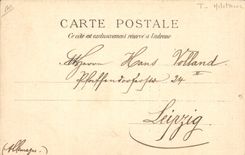 CARTE POSTALE
Ce côté est exclusivement réservé à l'adresse
Herrn Hans Volland
24 II
Leipzig
(Allemagne)